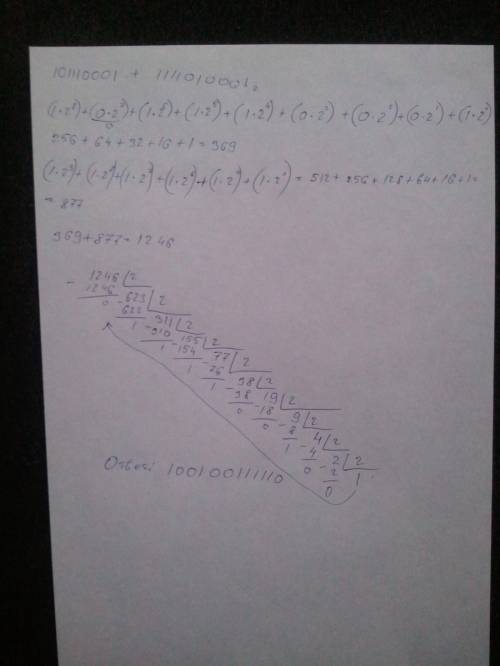 101110001 + 1111010001₂
(1·2⁸)+(0·2⁷)+(1·2⁶)+(1·2⁵)+(1·2⁴)+(0·2³)+(0·2²)+(0·2¹)+(1·2⁰)
0
256+64+32+16+1=369
(1·2⁹)+(1·2⁸)+(1·2⁷)+(1·2⁶)+(1·2⁴)+(1·2⁰)=512+256+128+64+16+1=
=877
369+877=1246
- 1246 | 2
1246 - 623 | 2
0 622 - 311 | 2
1 310 - 155 | 2
1 154 - 77 | 2
1 76 - 38 | 2
1 38 - 19 | 2
0 18 - 9 | 2
0 8 - 4 | 2
1 4 - 2 | 2
0 2 1
0
Ответ: 10010011110